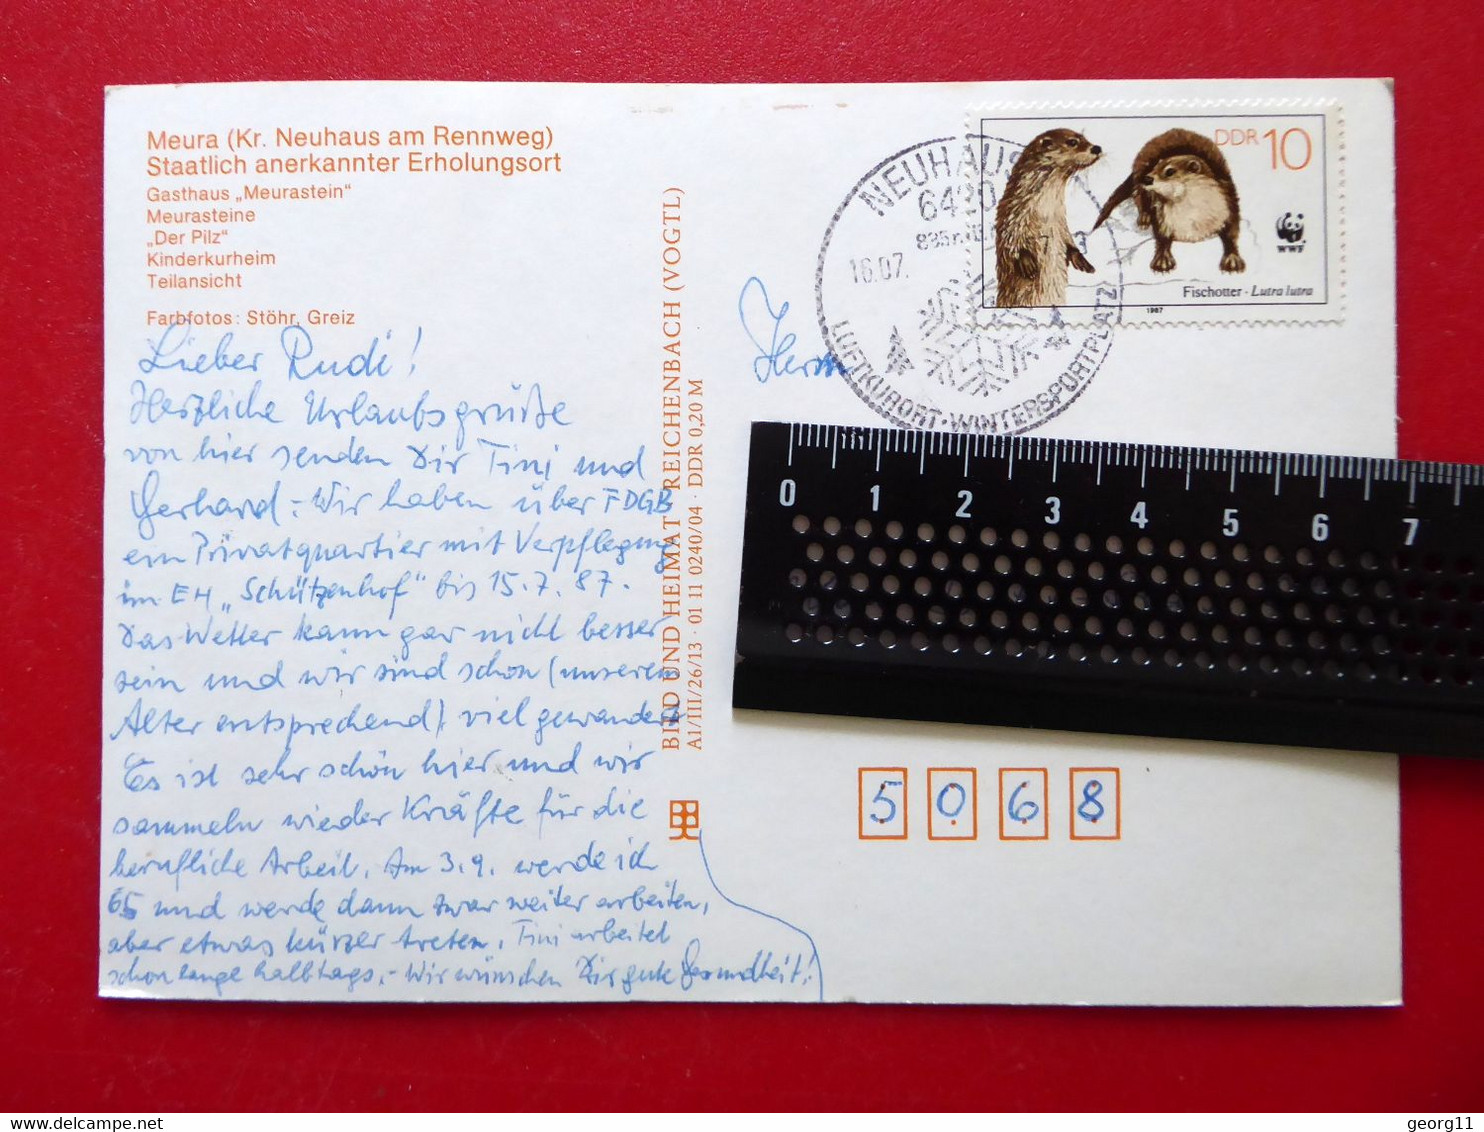 Meura (Kr. Neuhaus am Rennweg)
Staatlich anerkannter Erholungsort
Gasthaus „Meurastein“
Meurasteine
„Der Pilz“
Kinderkurheim
Teilansicht
Farbfotos: Stöhr, Greiz
Lieber Rudi!
Herzliche Urlaubsgrüße
von hier senden Dir Tini und
Gerhard.- Wir haben über FDGB
ein Privatquartier mit Verpflegung
im EH „Schützenhof“ bis 15.7.87.
Das Wetter kann gar nicht besser
sein und wir sind schon (unserem
Alter entsprechend) viel gewandert.
Es ist sehr schön hier und wir
sammeln wieder Kräfte für die
berufliche Arbeit. Am 3.9. werde ich
65 und werde dann zwar weiter arbeiten,
aber etwas kürzer treten. Tini arbeitet
schon lange halbtags.- Wir wünschen Dir gute Gesundheit!
BILD UND HEIMAT REICHENBACH (VOGTL)
A1/III/26/13 · 01 11 0240/04 · DDR 0,20 M
NEUHAUS
6420
16.07.
LUFTKURORT · WINTERSPORTPLATZ
DDR 10
WWF
Fischotter · Lutra lutra
1987
Herrn
0 1 2 3 4 5 6 7
5068
georg11